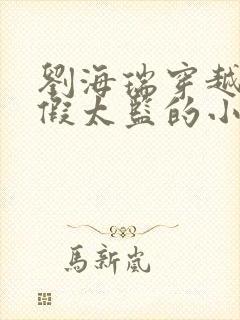 劉海瑞穿越
假太監的小
馬新嵐